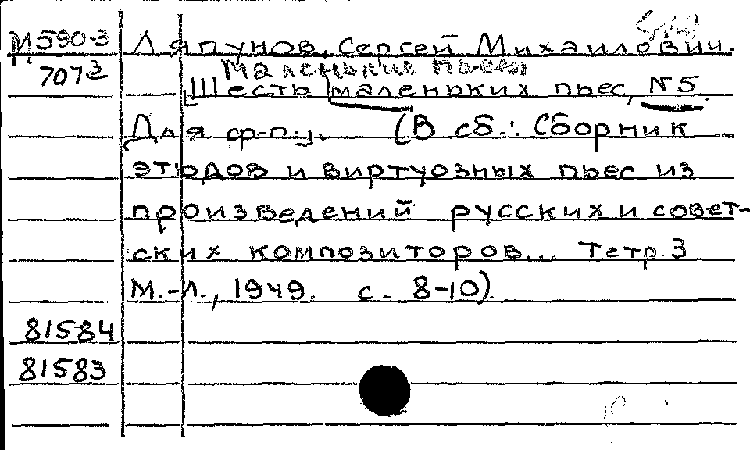 М590-3
707-3
Ляпунов, Сергей Михайлович.
Маленькие пьесы
[Шесть маленьких пьес, №5.
Для ф-п.
(В сб.: Сборник
этюдов и виртуозных пьес из
произведений русских и совет-
ских композиторов... Тетр. 3
М.-Л., 1949. с. 8-10).
81584
81583